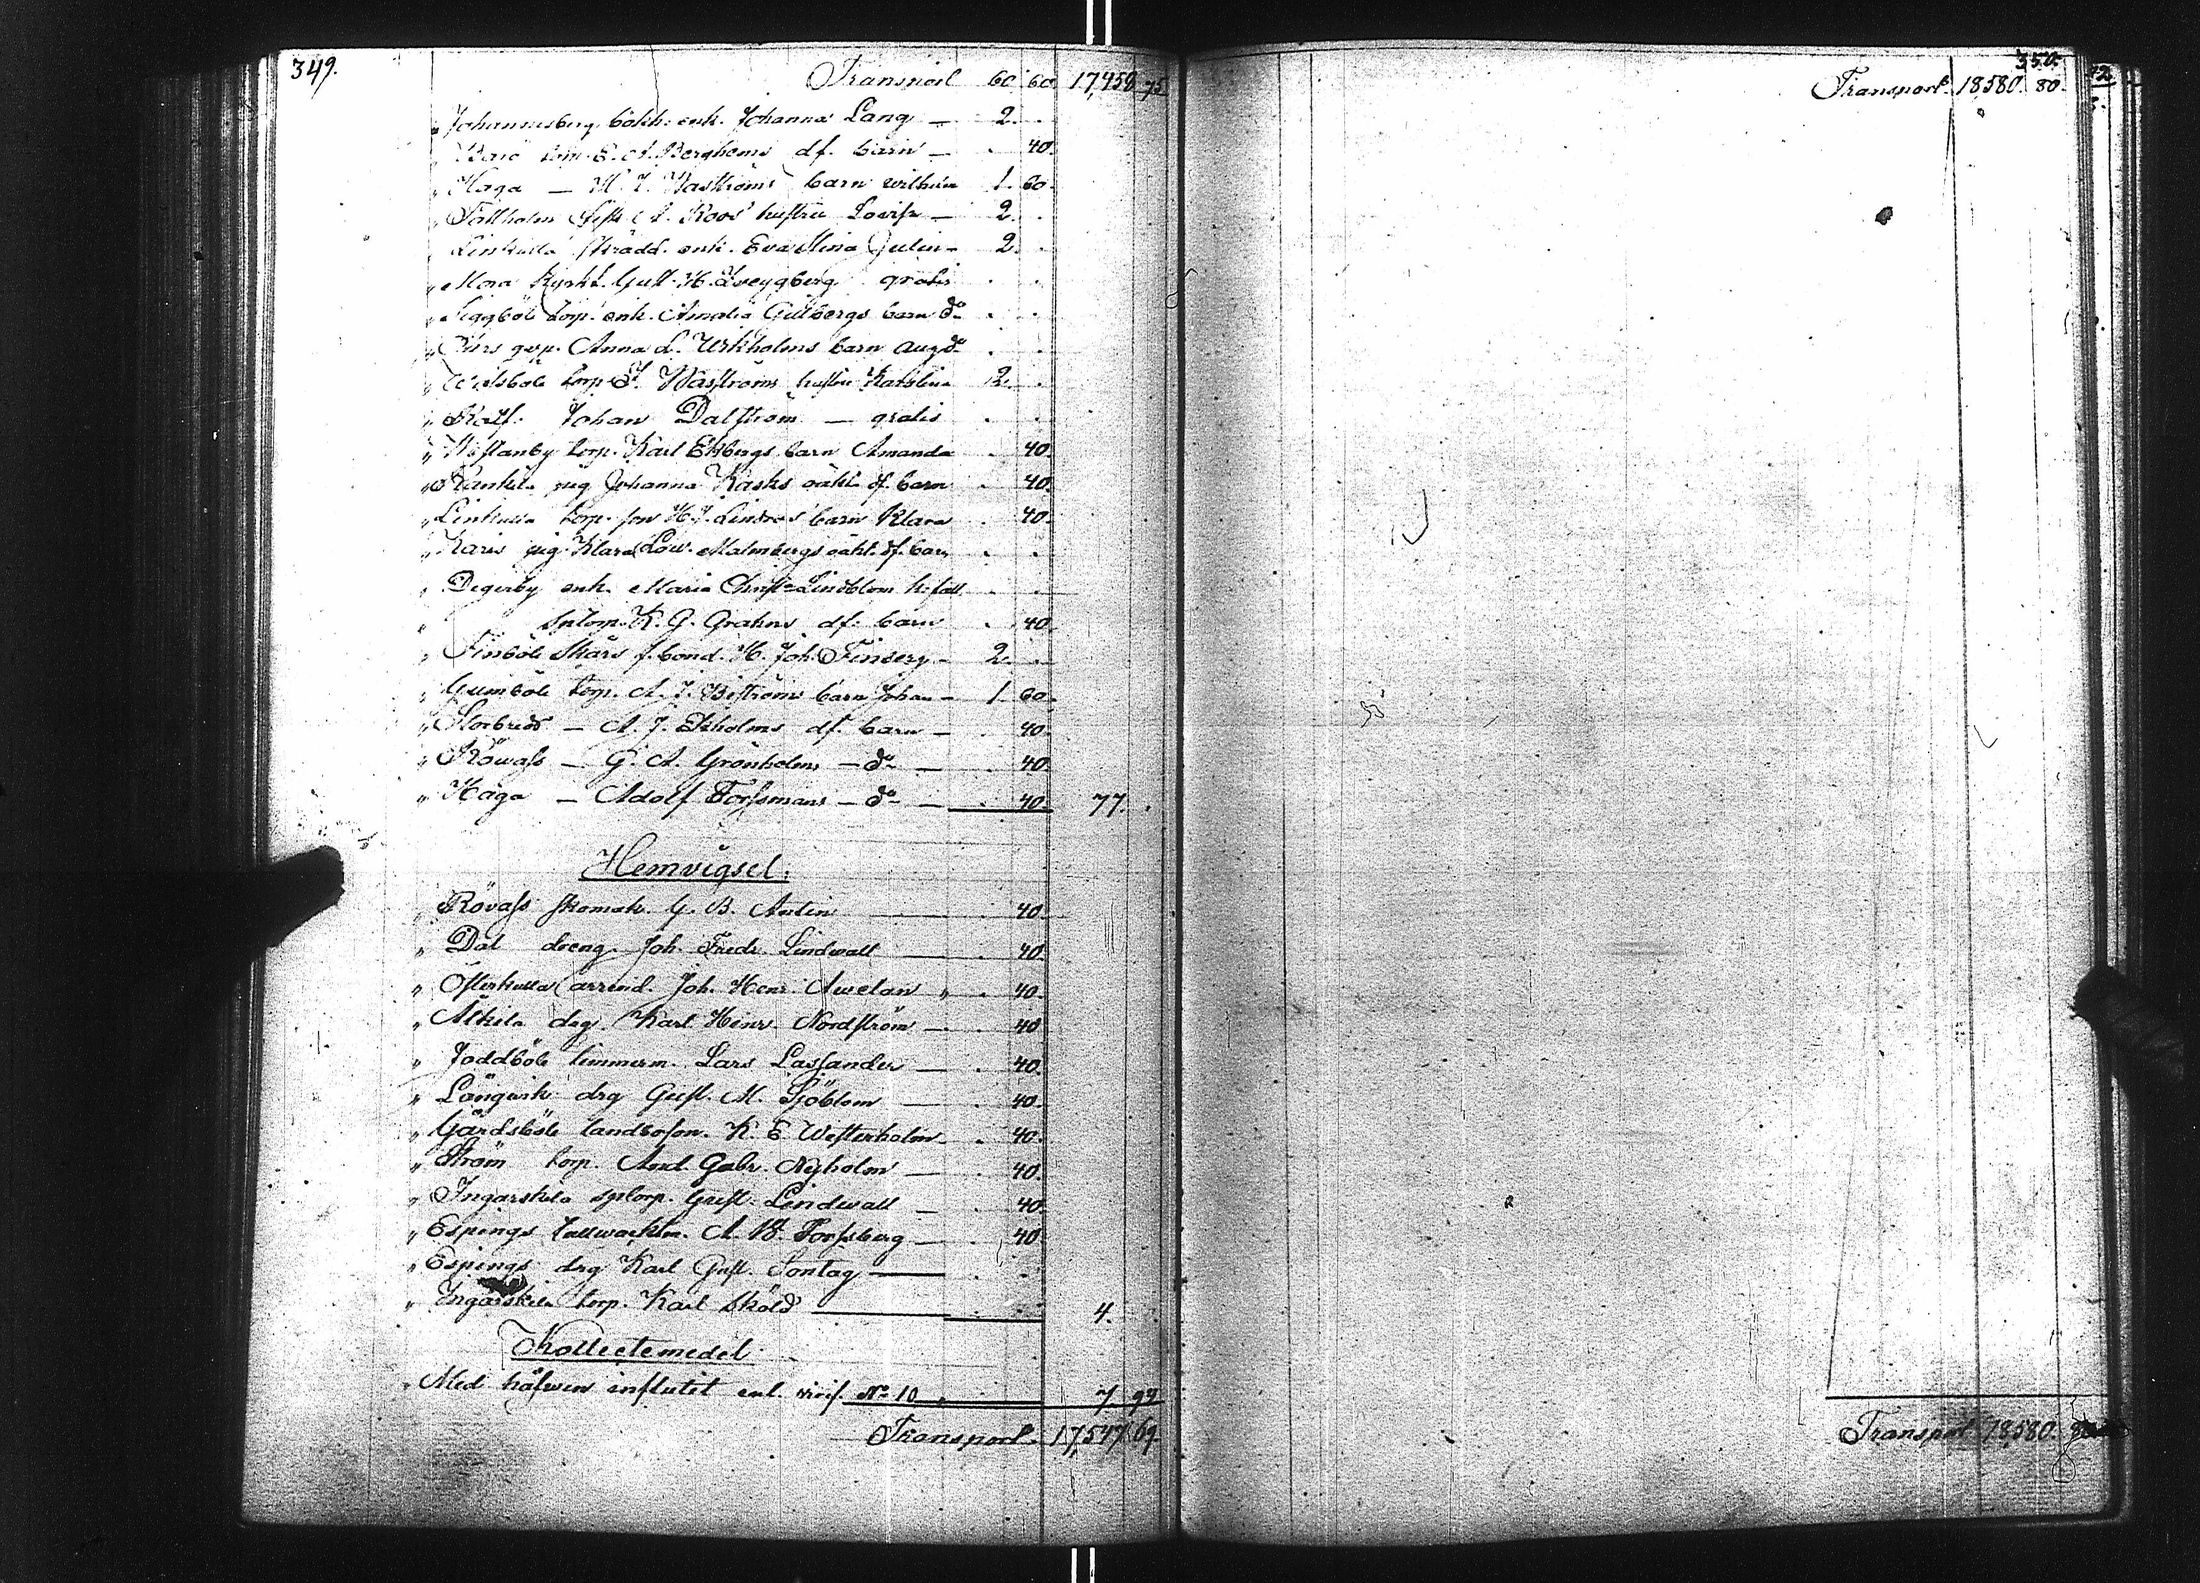 349.
Transport 60 60 17,458 75
" Johannesberg bokh: enk. Johanna Lang — 2. .
" Barö torp. E. A. Bergholms df. barn — . 40.
" Haga — K. J. Wastroms barn wilhelm 1. 60.
" Tallholm A. Roos' hustru Lovisa — 2. .
" Linkulla skrädd. enk. Eva Stina Gulin — 2. .
" Mora Gust. H. Sveygberg gratis . .
" Siggböle torp. enk. Amalia Gillbergs barn do . .
" Anna L. Uhkholms barn Aug do . .
" torp. J. Wäströms hustru Karolina 2. .
" Johan Dalström — gratis . .
" Westanby torp. Karl Ekbergs barn Amanda . 40.
" Rankila pig. Johanna Rasks oäkt. df. barn . 40.
" Linkulla torp. son H. J. Lindroos barn Klara . 40.
" Karis pig. Klara Lov. Malmbergs oäkt. df. barn . .
" Degerby enk. Maria Christ. Lindblom . .
" sptorp. K. G. Grahns df. barn . 40.
" Finböle Skärs f. bond. H. Joh. Finberg — 2. .
" Gumböle torp. A. J. Biströms barn Johan — 1. 60.
" Storbredd — A. J. Ekholms df. barn — . 40.
" Rövass — G. A. Grönholms — do — . 40.
" Haga — Adolf Forssmans — do — . 40. 77. .
Hemvigsel.
" Rövass skomak. G. B. Antin . 40.
" Dal dreng Joh. Fredr. Lindwall . 40.
" Österkulla arrend. Joh. Henr. Awelan " . 40.
" Älkila drg. Karl Henr. Nordström — . 40
" Joddböle timmerm. Lars Lassander — . 40.
" Långvik drg Gust. M. Sjöblom — . 40.
" Gårdsböle landboson. K. E. Westerholm . 40.
" Ström torp. And. Gabr. Nyholm — . 40.
" Ingarskila sptorp. Gust. Lindwall — . 40.
" Espings tullwaktm. A. W. Forssberg — . 40.
" Espings drg Karl Gust. Sontag — . .
" Ingarskila torp. Karl Sköld . . 4. .
Kollectemedel.
" Med håfwen influtit enl. verif. No 10 " 7. 94
Transport. 17,547. 69.
350.
Transport. 18,580. 80.
Transport 18,580.